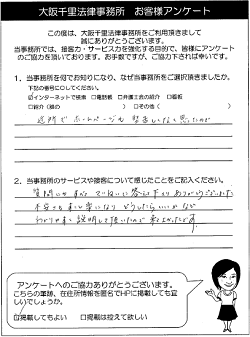 大阪千里法律事務所　お客様アンケート
この度は、大阪千里法律事務所をご利用頂きまして
誠にありがとうございます。
当事務所では、接客力・サービス力を強化する目的で、皆様にアンケート
のご協力を頂いております。お手数ですが、ご協力下されば幸いです。
1．当事務所を何でお知りになり、なぜ当事務所をご選択頂きましたか。
下記の番号に○してください。
☑インターネットで検索　□電話帳　□弁護士会の紹介　□看板
□紹介（　　の　　）　□その他（　　）
近所で ホームページも
思ったので
2．当事務所のサービスや接客について感じたことをご記入ください。
質問にも ていねいに 答えて下さり ありがとうございました
不安
わかりやすく説明して頂いたので
アンケートへのご協力ありがとうございます。
こちらの筆跡、在住所情報を匿名でHPに掲載しても宜
しいでしょうか。
☑掲載してもよい　□掲載は控えて欲しい